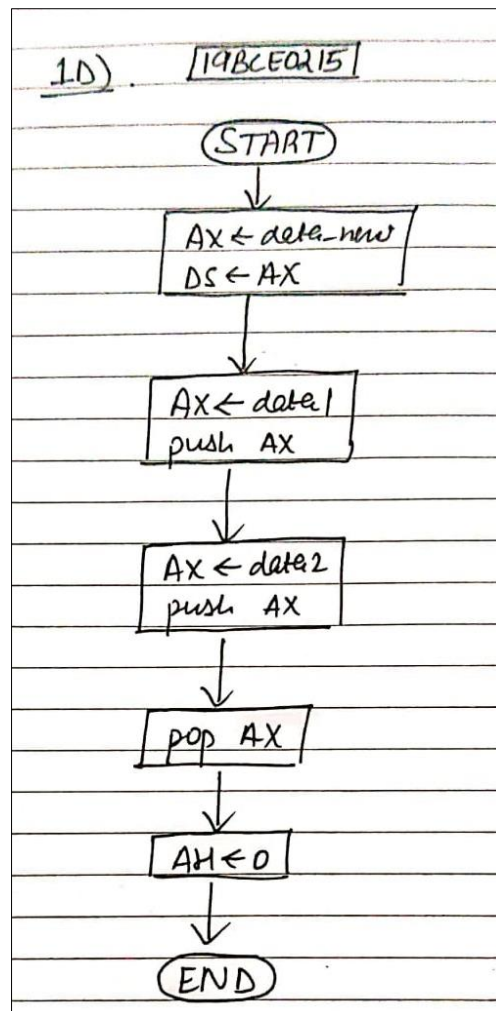 1D). 19BCE0215
START
AX ← data_new
DS ← AX
AX ← data1
push AX
AX ← data2
push AX
pop AX
AH ← 0
END